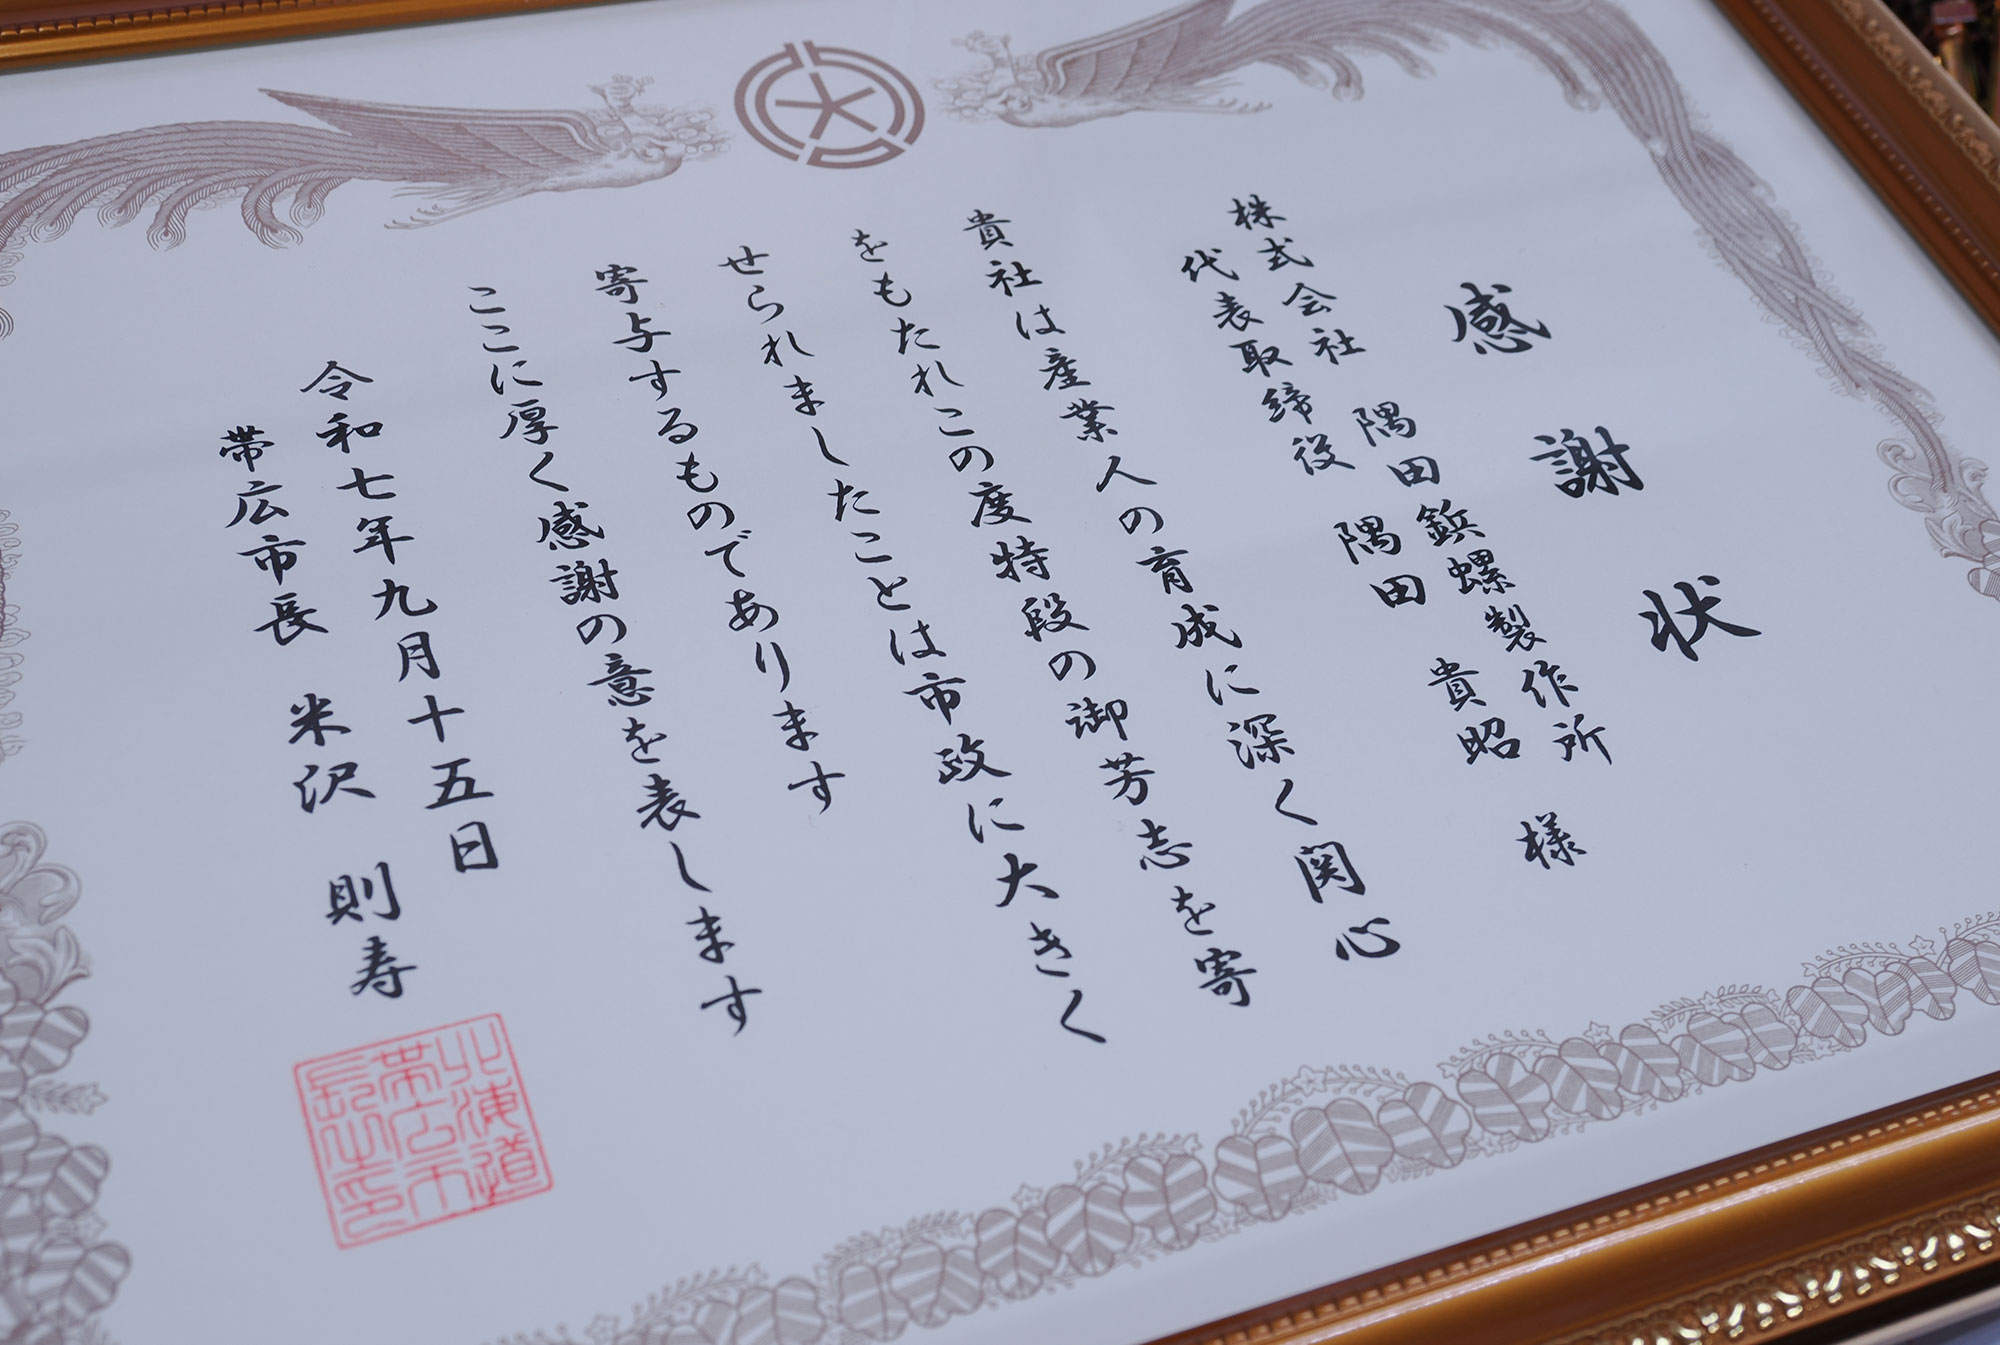 感謝状
株式会社 隅田鋲螺製作所
代表取締役 隅田 貴昭 様
貴社は産業人の育成に深く関心
をもたれこの度特段の御芳志を寄
せられましたことは市政に大きく
寄与するものであります
ここに厚く感謝の意を表します
令和七年九月十五日
帯広市長 米沢 則寿
北海道
帯広市
長之印